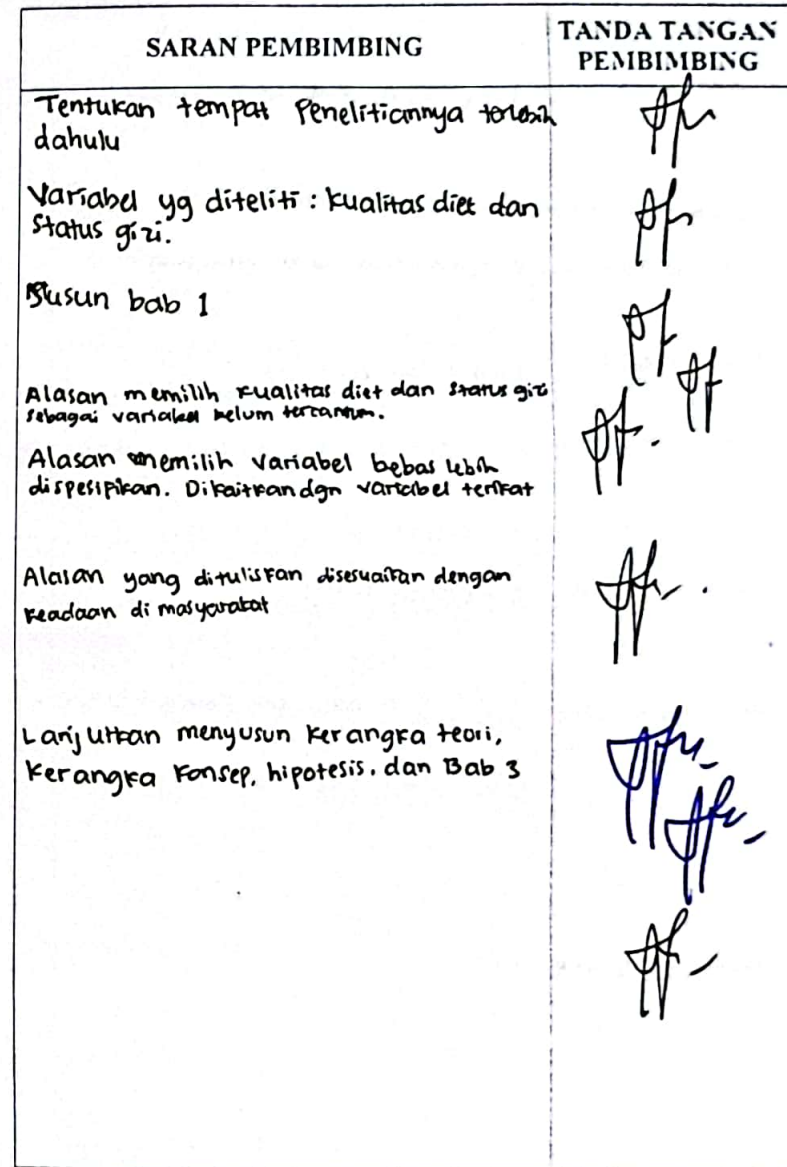 SARAN PEMBIMBING
TANDA TANGAN
PEMBIMBING
Tentukan tempat Penelitiannya terlebih
dahulu
Variabel yg diteliti : kualitas diet dan
Status gizi.
Susun bab 1
Alasan memilih kualitas diet dan status gizi
sebagai variabel belum tercantum.
Alasan memilih variabel bebas lebih
dispesipikan. Dikaitkan dgn variabel terikat
Alasan yang dituliskan disesuaikan dengan
keadaan di masyarakat
Lanjutkan menyusun kerangka teori,
kerangka konsep, hipotesis, dan Bab 3